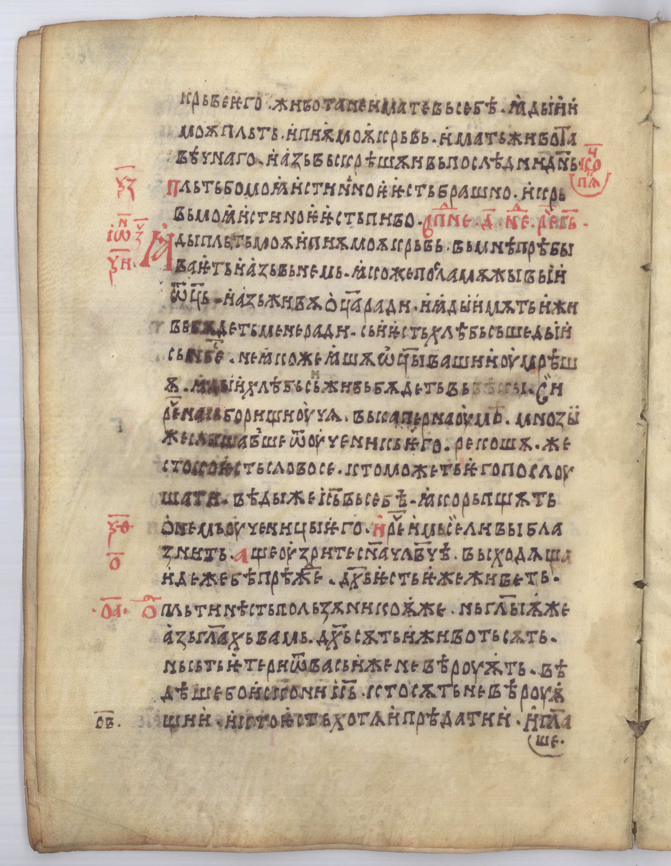 крьве его. живота не имате вь себѣ. ꙗдыи и
моѫ пльть. и пиѫ моѫ крьвь. имать живота
вѣчнаго. и азь вьскрѣшѫ и вь послѣдни днь
пльть бо моꙗ истинно ѥсть брашно. и крь
вь моꙗ истинно ѥсть пиво.
ды пльть моѫ и пиѫ моѫ крьвь. вь мнѣ прѣбы
ваѥть и азь вь немь. ꙗкоже посла мѧ живыи
ѿць. и азь живѫ оца ради. и ꙗдыи мѧ ть и жи
вь бѫдеть мене ради. сь ѥсть хлѣбь сьшедыи
сь нбсе. не ꙗкоже ꙗшѧ ѿци ваши и оумрѣш
ѧ. ꙗдыи хлѣбь сь живь бѫдеть вь вѣкы. Сии
рече на сьборищи оучѧ. вь капернаоумѣ. мнози
же слышавше ѿ оученикь его. рекошѧ. же
стоко ѥсть слово се. кто можеть его послоу
шати. вѣды же ісь вь себѣ. ꙗко рьпщѫть
о немь оученици его. и рече имь се ли вы бла
знить. аще оузрите сна члвчѣ. вьсходѧща
идеже бѣ прѣжде. дхь ѥсть иже живеть.
пльти нѣсть пользѫ никоѫже. и глы ѧже
азь глахь вамь. дхь сѫть и животь сѫть.
нь сѫть етери ѿ вась иже не вѣроуѫть. вѣ
дѣше бо искони ісь. кто сѫть не вѣроуѫ
щии. и кто ѥсть хотѧи прѣдати и. и гла
ше.